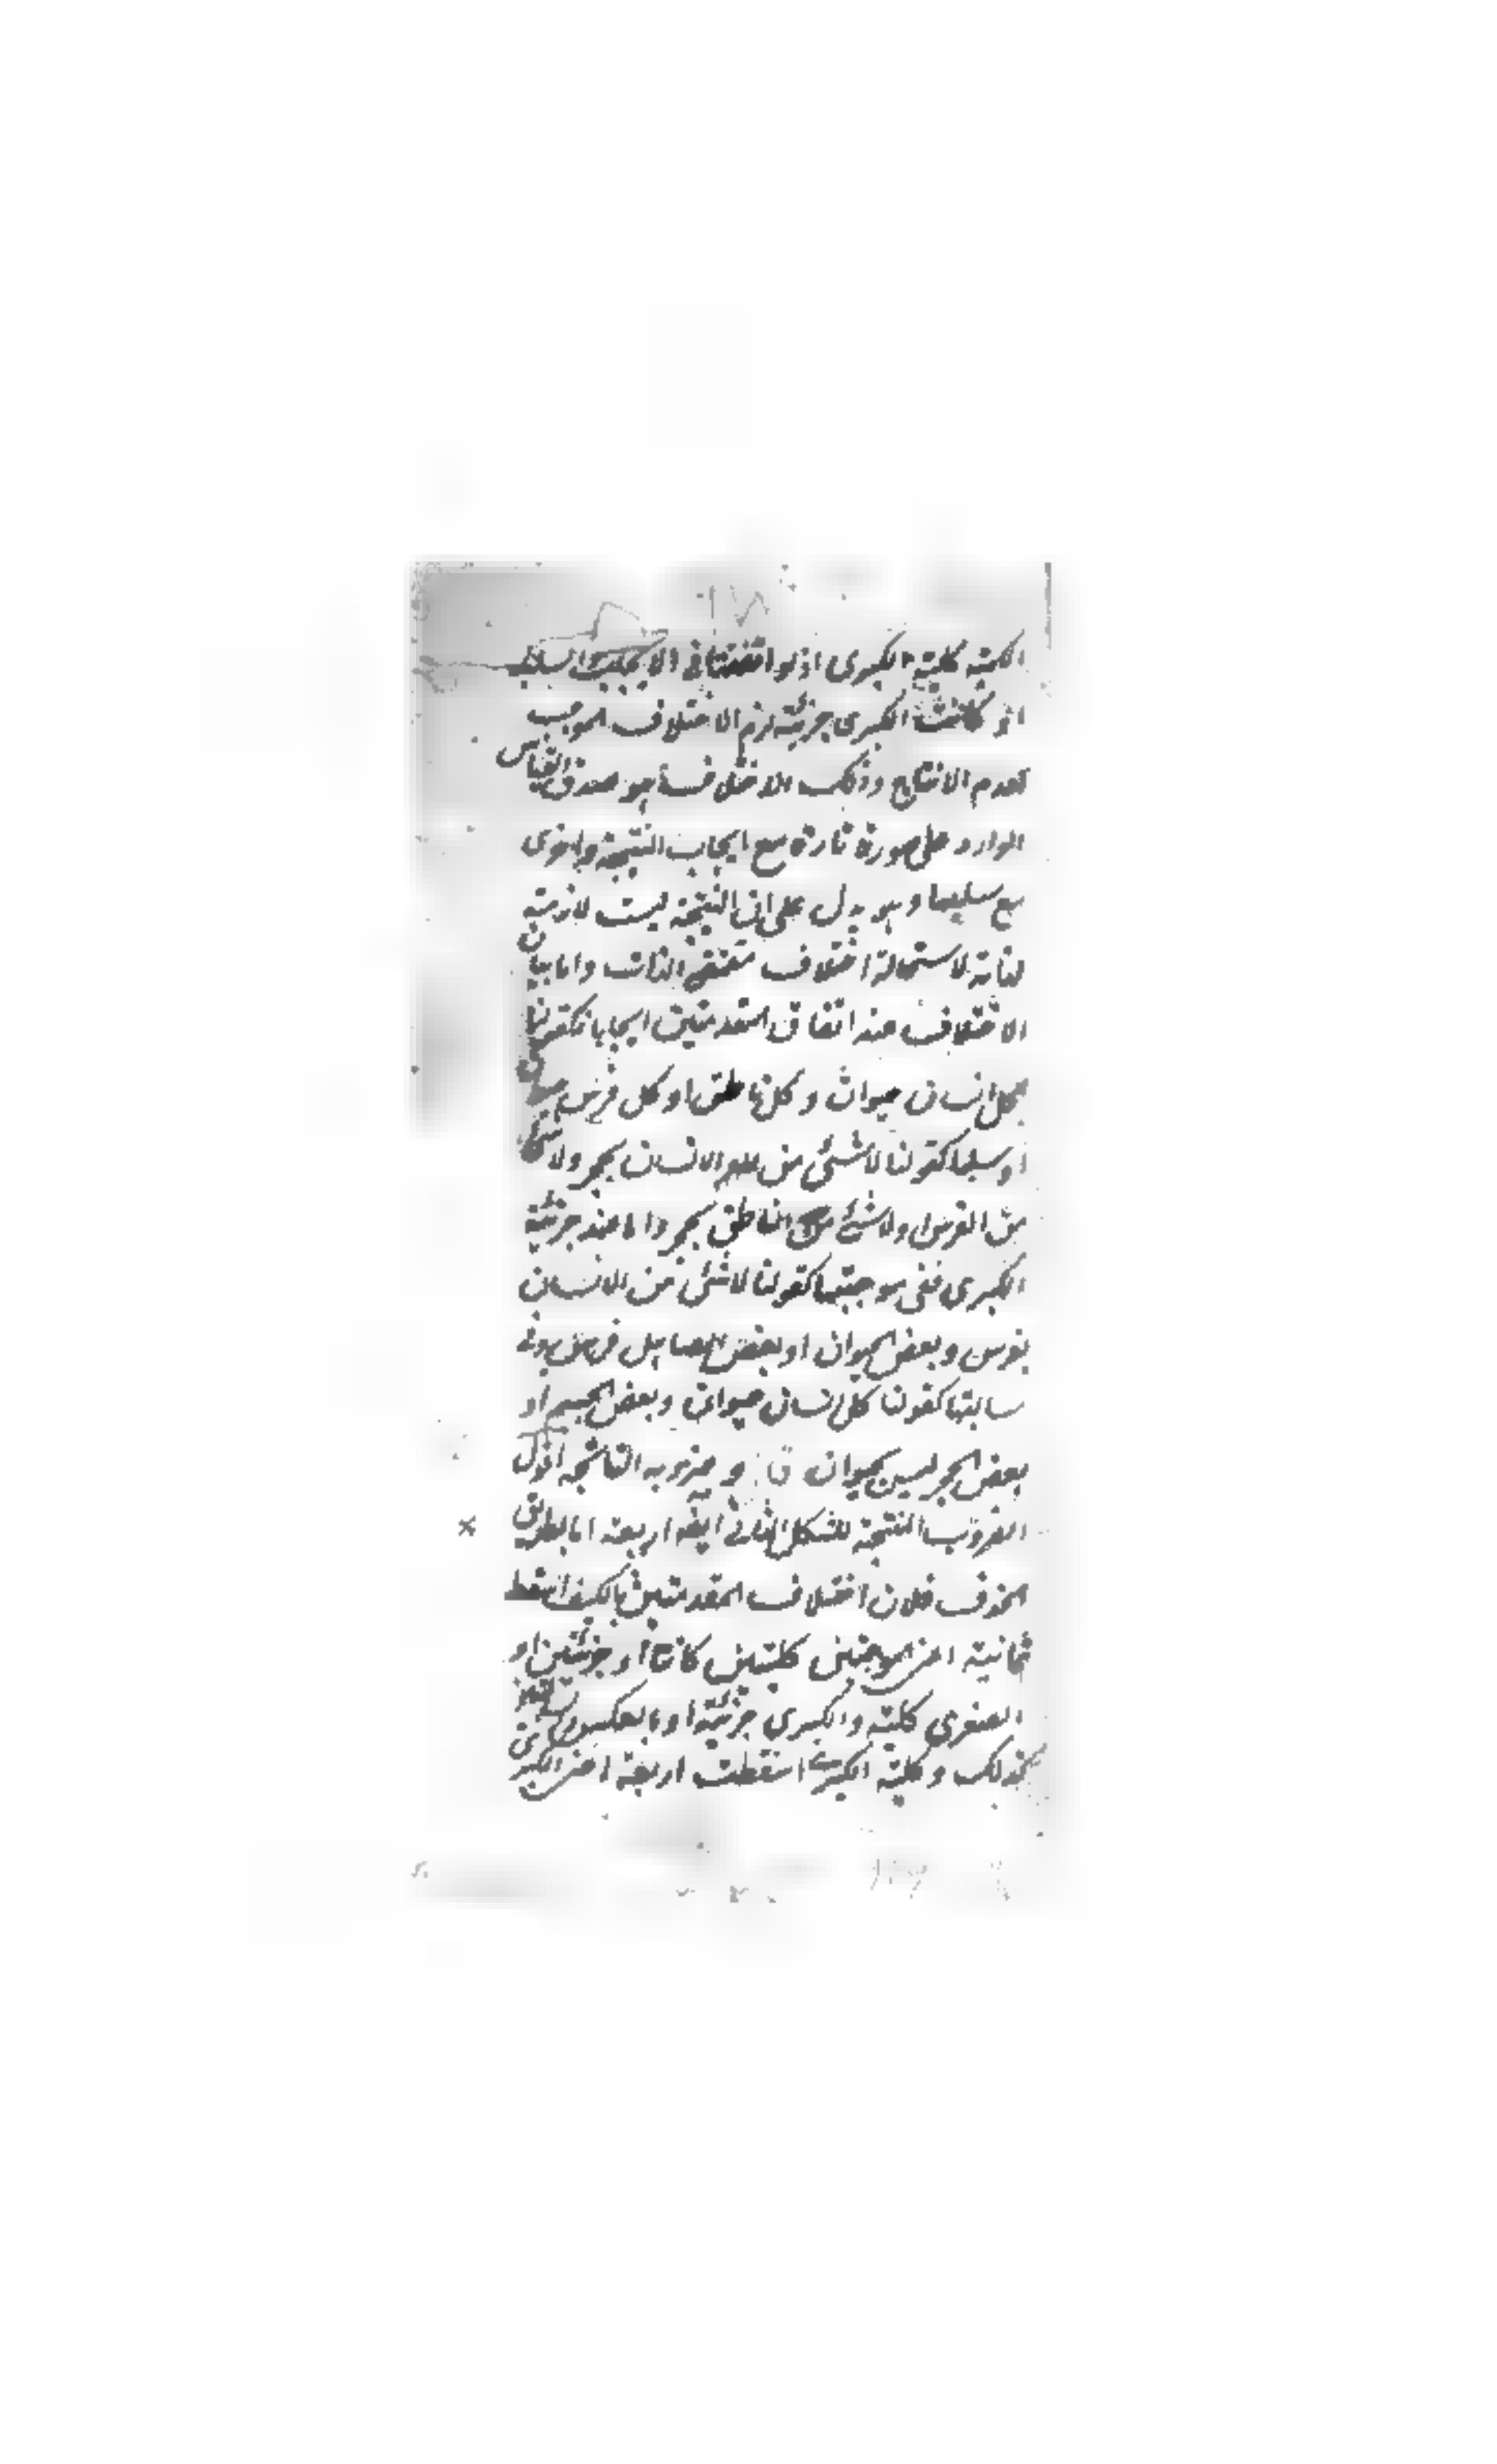 الكمية كلية الكبرى اذ لو اتفقتا في الايجاب والسلب
او كانت الكبرى جزئية لزم الاختلاف الموجب
لعدم الانتاج وذلك الاختلاف هو صدق القياس
الوارد على صورة تارة مع ايجاب النتيجة واخرى
مع سلبها وهو يدل على ان النتيجة ليست لازمة
لذاته لاستحالة اختلاف مقتضى الذات واما بيان
الاختلاف عند اتفاق المقدمتين ايجابا فكقولنا
كل انسان حيوان وكل ناطق او كل فرس حيوان
او سلبا كقولنا لا شئ من الانسان بحجر ولا شئ
من الفرس ولا شئ من الناطق بحجر واما عند جزئية
الكبرى ففي موجبتها كقولنا لا شئ من الانسان
بفرس وبعض الحيوان او بعض الصاهل فرس وفي
سالبتها كقولنا كل انسان حيوان وبعض الجسم او
بعض الحجر ليس بحيوان و ضروبه الناتجة اقول
الضروب المنتجة للشكل الثاني ايضا اربعة اما بطريق
الحذف فلان اختلاف المقدمتين بالكيف اسقط
ثمانية اعني الموجبتين كليتين كانتا او جزئيتين او
الصغرى كلية والكبرى جزئية او بالعكس والسالبتين
كذلك وكلية الكبرى اسقطت اربعة اعني الكبرى